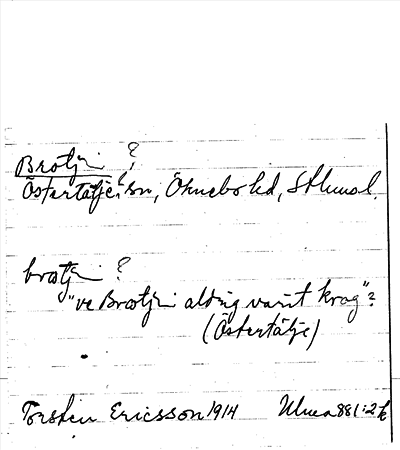 Brotjin ?
Östertälje sn, Öknebo hd, Sthms l.
brotjin ?
"ve Brotjin aldrig varit krog"?
(Östertälje)
Torsten Ericsson 1914 Ulma 881:2 k